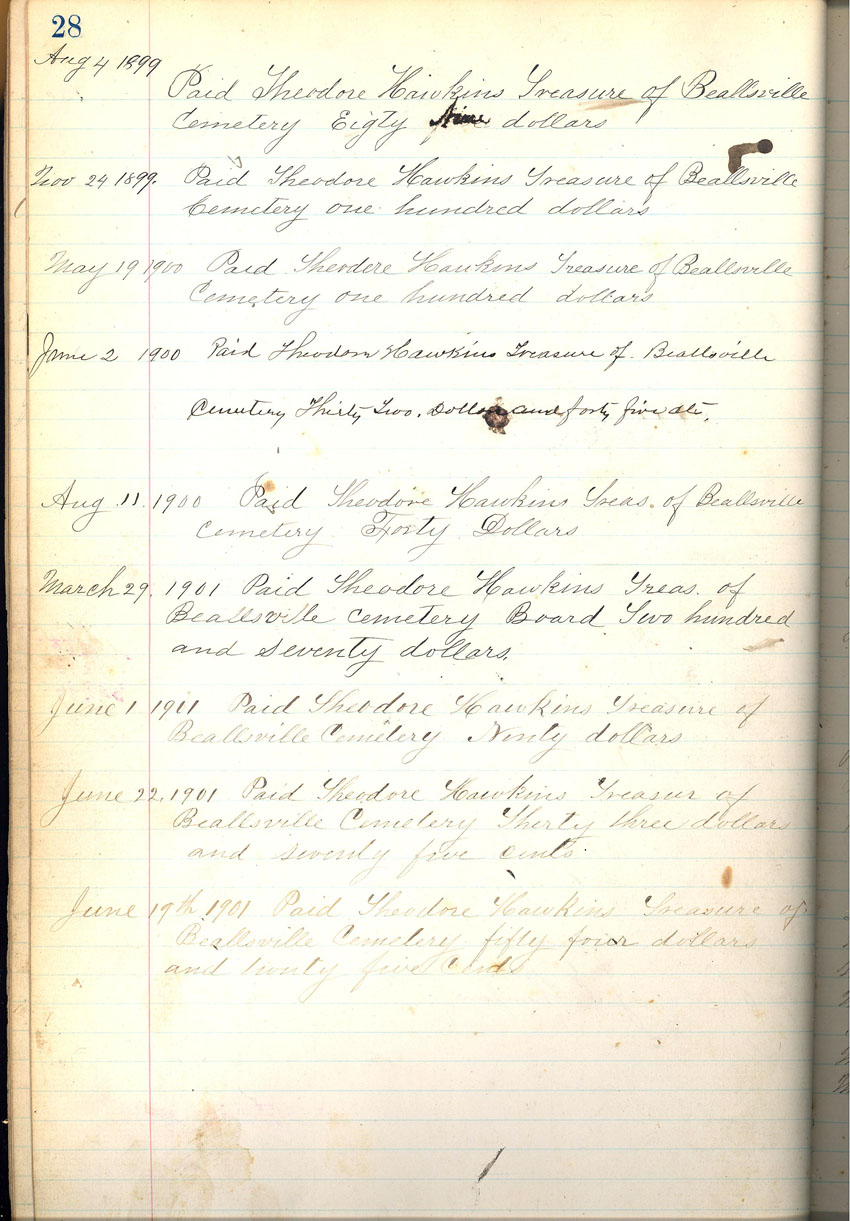 28
Aug 4 1899
Paid Theodore Hawkins Treasure of Beallsville
Cemetery Eigty Nine dollars
Nov 24 1899. Paid Theodore Hawkins Treasure of Beallsville
Cemetery one hundred dollars
May 19 1900 Paid Theodere Hawkins Treasure of Beallsville
Cemetery one hundred dollars
June 2 1900 Paid Theodore Hawkins Treasure of Beallsville
Cemetery Thirty Two. Dollars and forty five cts.
Aug 11. 1900 Paid Theodore Hawkins Treas. of Beallsville
Cemetery Forty Dollars
March 29. 1901 Paid Theodore Hawkins Treas. of
Beallsville cemetery Board Two hundred
and seventy dollars.
June 1 1911 Paid Theodore Hawkins Treasure of
Beallsville Cemetery Ninty dollars
June 22. 1901 Paid Theodore Hawkins Treasur of
Beallsville Cemetery Thirty three dollars
and seventy five cents.
June 19th 1901 Paid Theodore Hawkins Treasure of
Beallsville Cemetery fifty four dollars
and twnty five Cents